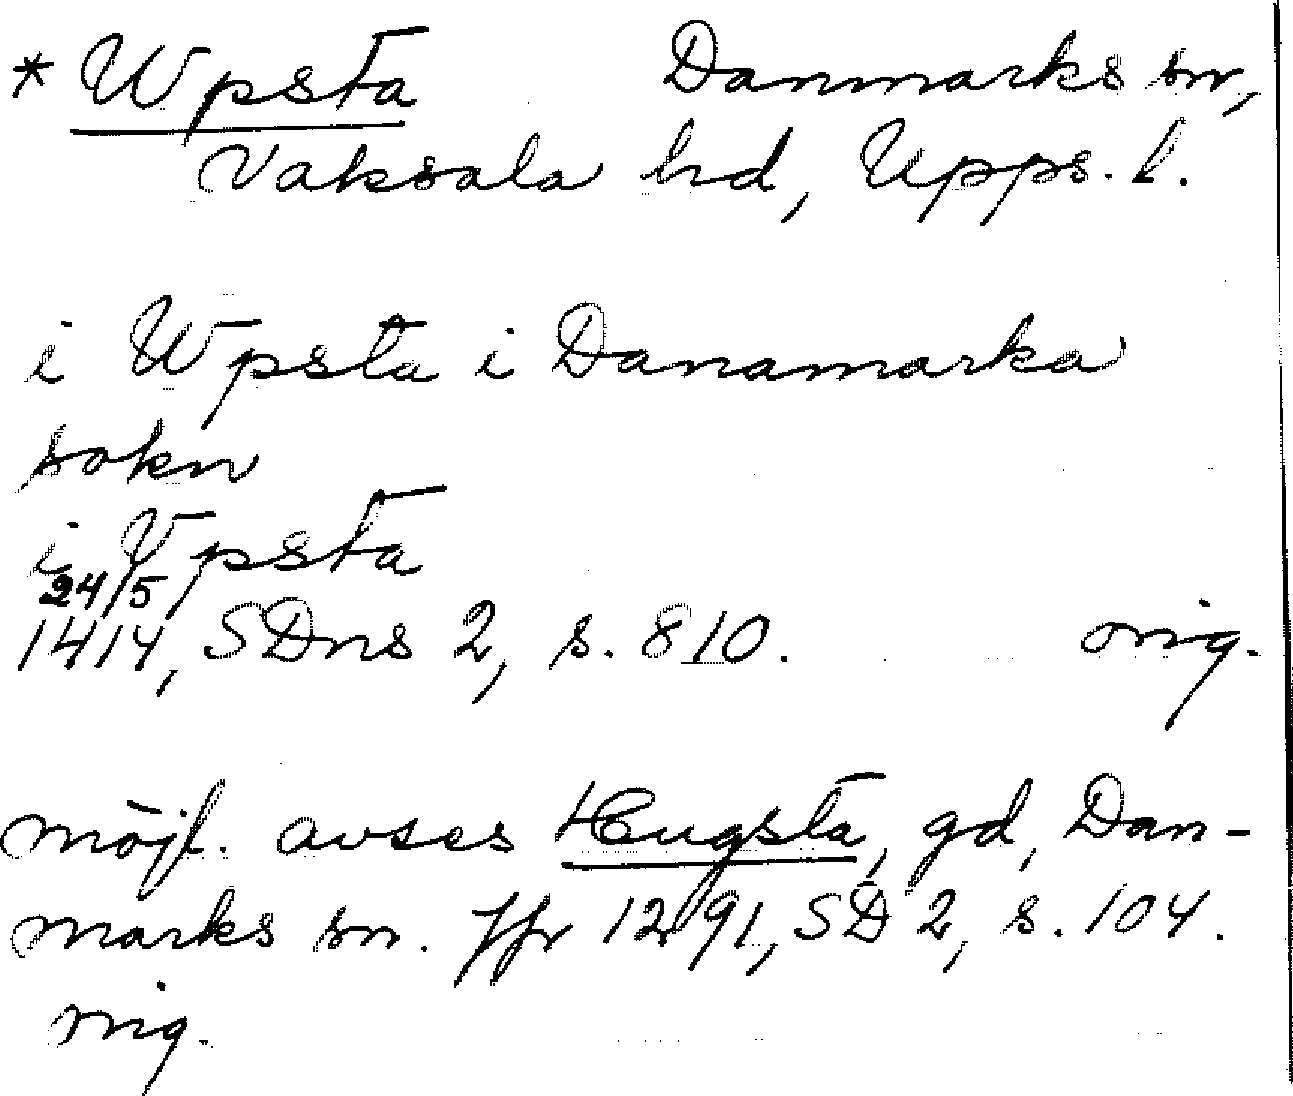 * Wpsta Danmarks sn,
Vaksala hd, Upps. l.
i Wpsta i Danamarka
sokn
i Vpsta
24/5
1414, SDns 2, s. 810. orig.
möjl. avses Hugsta, gd, Dan-
marks sn. Jfr 1291, SD 2, s. 104.
orig.